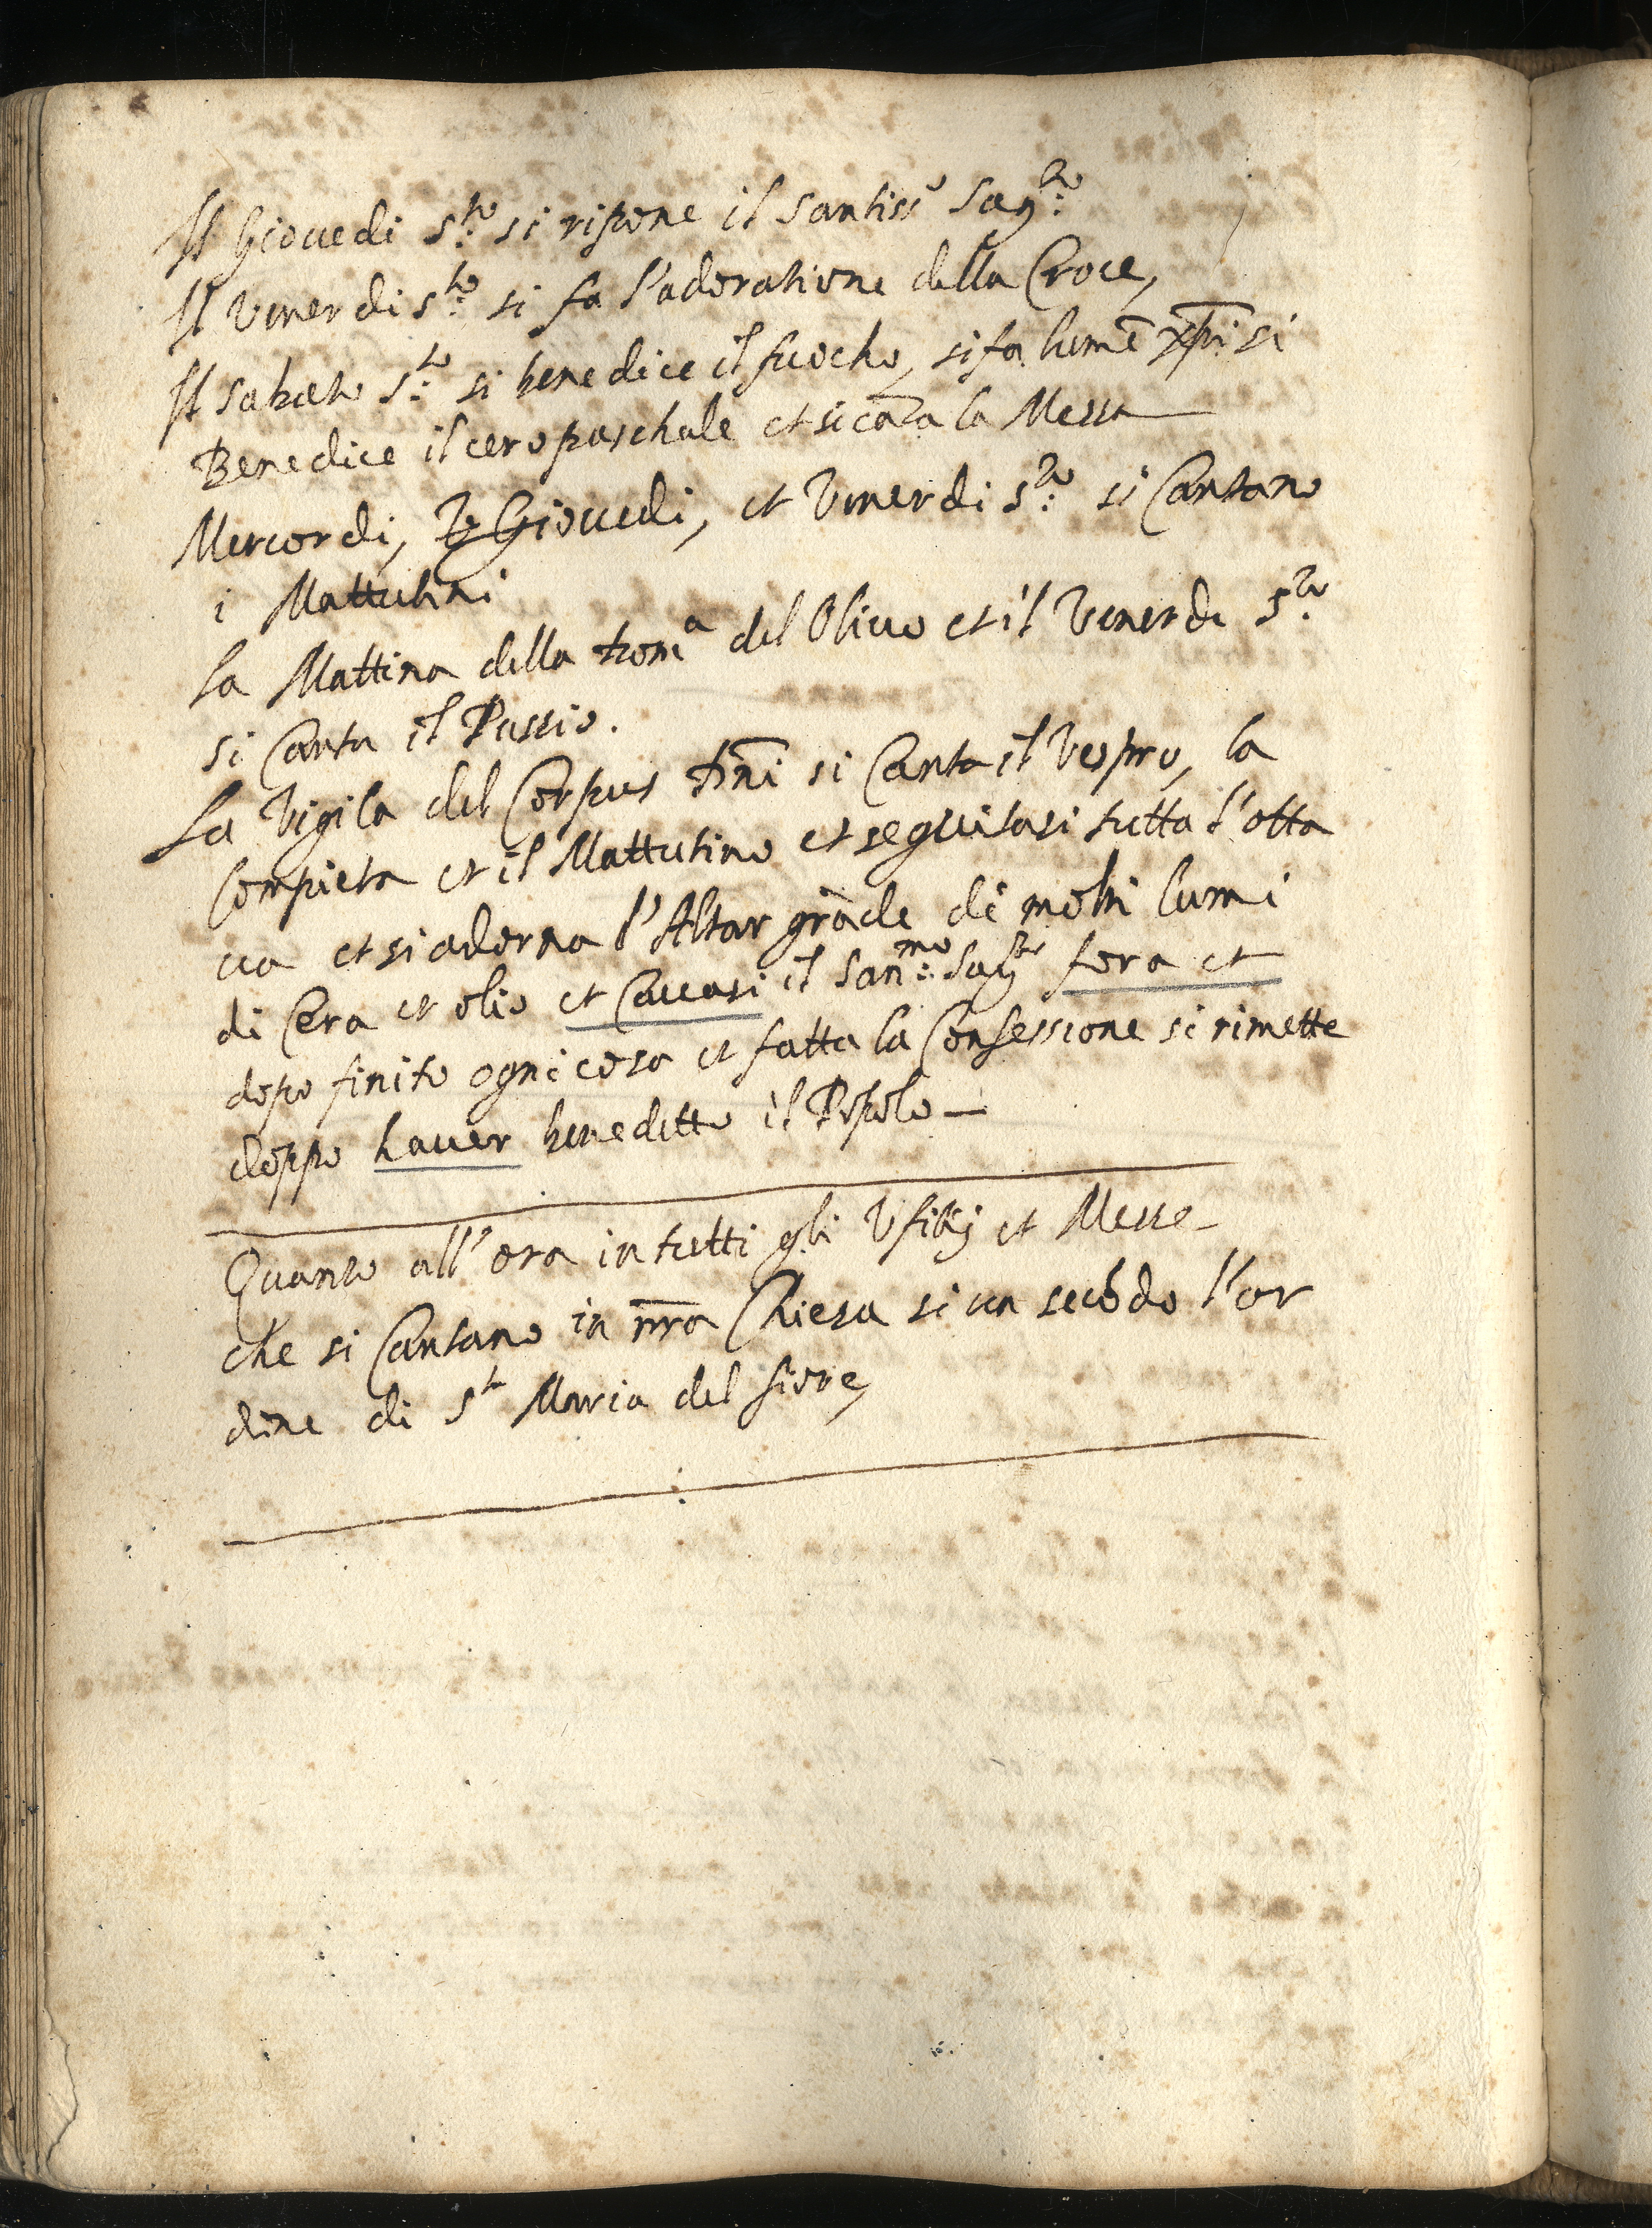 Il Giovedi S.to si ripone il Santiss.o Sag.to
Il Venerdi S.to si fa l'adoratione della Croce,
Il Sabato S.to si benedice il fuocho, si fa lumē xp̄i si
Benedice il cero paschale et si cāta la Messa
Mercordi, Giovedi, et Venerdi S.to si Cantano
i Mattutini
La Mattina della Dom.a del Olivo et il Venerdi S.to
si Canta il Passio.
La Vigila del Corpus Dn̄i si Canta il Vespro, la
Compieta et il Mattutino et seguitasi tutta l'otta
va et si adorna l'Altar grāde di molti lumi
di Cera et olio et Cavasi il San.mo Sag.to fora et
dopo finito ogni cosa et fatta la Confessione si rimette
doppo haver beneditto il Popolo —
Quanto all'ora in tutti gli Ufitij et Messe
che si Cantano in nr̄a Chiesa si va secōdo l'or
dine di S.ta Maria del fiore,